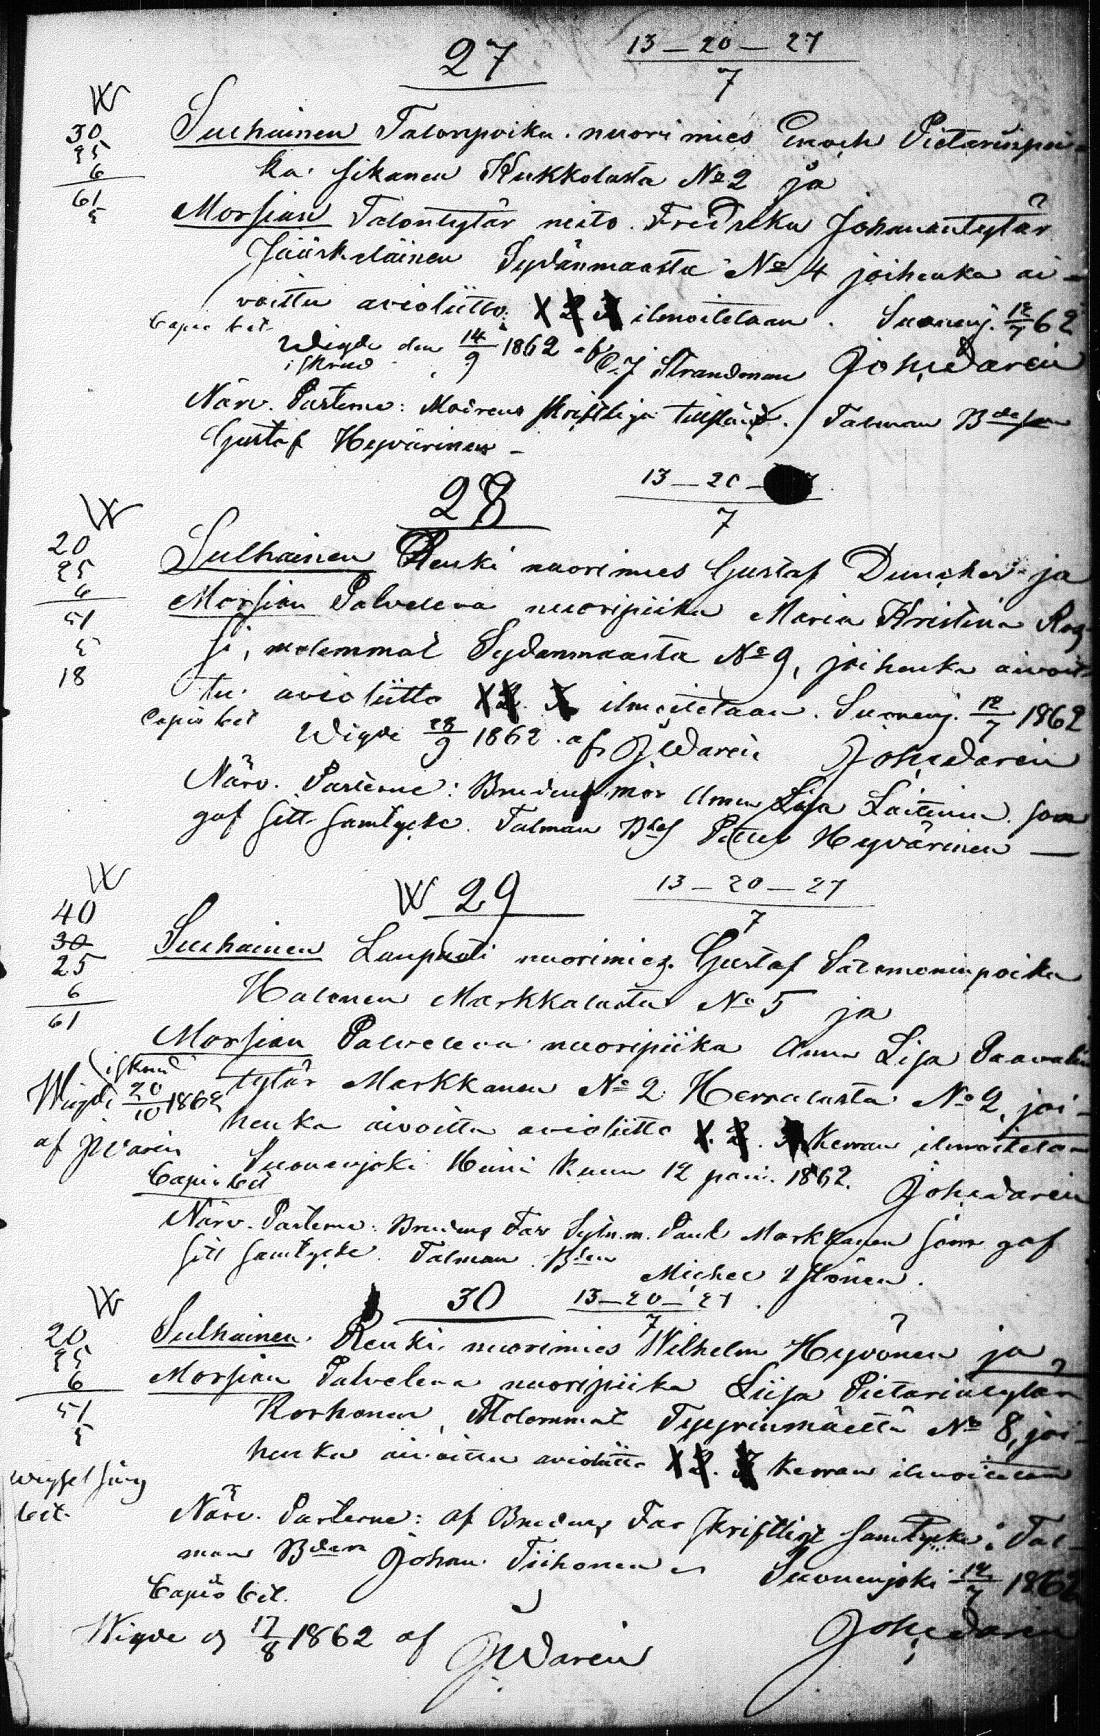 27
13 – 20 – 27
7
W
30
25
6
61
5
Sulhainen Talonpoika nuorimies Enoch Pietarinpoi-
ka Sikanen Kukkolasta No 2 ja
Morsian Talontytär neito Fredrika Johanantytär
Jääskeläinen Sydänmaasta No 4 joihenka ai-
voittu avioliitto 1 2 3 ilmoitetaan. Suonenj. 12/7 62
Capio bet.
Wigde den 14/9 1862 af C. J Strandman Joh. Warén
Närv. Parterne: Modrens skriftliga tillstånd. Talman Bdesson
Gustaf Hyvärinen –
28
13 – 20 –
7
W
20
25
6
51
5
18
Sulhainen Renki nuorimies Gustaf Duncker ja
Morsian Palveleva nuoripiika Maria Kristina
molemmat Sydänmaasta No 9, joihenka aivoit-
tu avioliitto 1 2 3 ilmoitetaan. Suonenj. 12/7 1862
Capio bet
Wigde 28/9 1862 af J Warén Joh. Warén
Närv. Parterne: Brudens mor Lisa Laitinen som
gaf sitt samtycke. Talman Petter Hyvärinen —
W
W 29
13 – 20 – 27
7
40
30
25
6
61
Sulhainen Lampuoti nuorimies Gustaf Salomoninpoika
Halonen Markkalasta No 5 ja
Morsian Palveleva nuoripiika Anna Lisa Paavalin
tytär Markkanen No 2 Herralasta No 2, joi-
henka aivoittu avioliitto 1. 2. 3 Kerran ilmoitetaan
Wigde 20/10 1862
af J Warén
Suonenjoki Heinä Kuun 12 päiv. 1862. Joh. Warén
Capio bet
Närv. Parterne: Brudens Far Paul Markkanen som gaf
sitt samtycke. Talman Michel
W
30
13 – 20 – 27
7
20
25
6
51
5
Sulhainen Renki nuorimies Wilhelm Hyvönen ja
Morsian Palveleva nuoripiika Liisa Pietarintytär
Korhonen, Molemmat Tyyrinmäeltä No 8, joi-
henka aivoittu avioliitto 1 2. 3 Kerran ilmoitetaan
bet.
Närv. Parterne: af Brudens Far Skriftligt samtycke. Tal-
man Johan Tiihonen Suonenjoki 12/7 1862
Capio bet.
Wigde 17/8 1862 af J Warén Joh. Warén